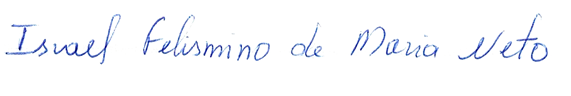 Israel Felismino de Maria Neto